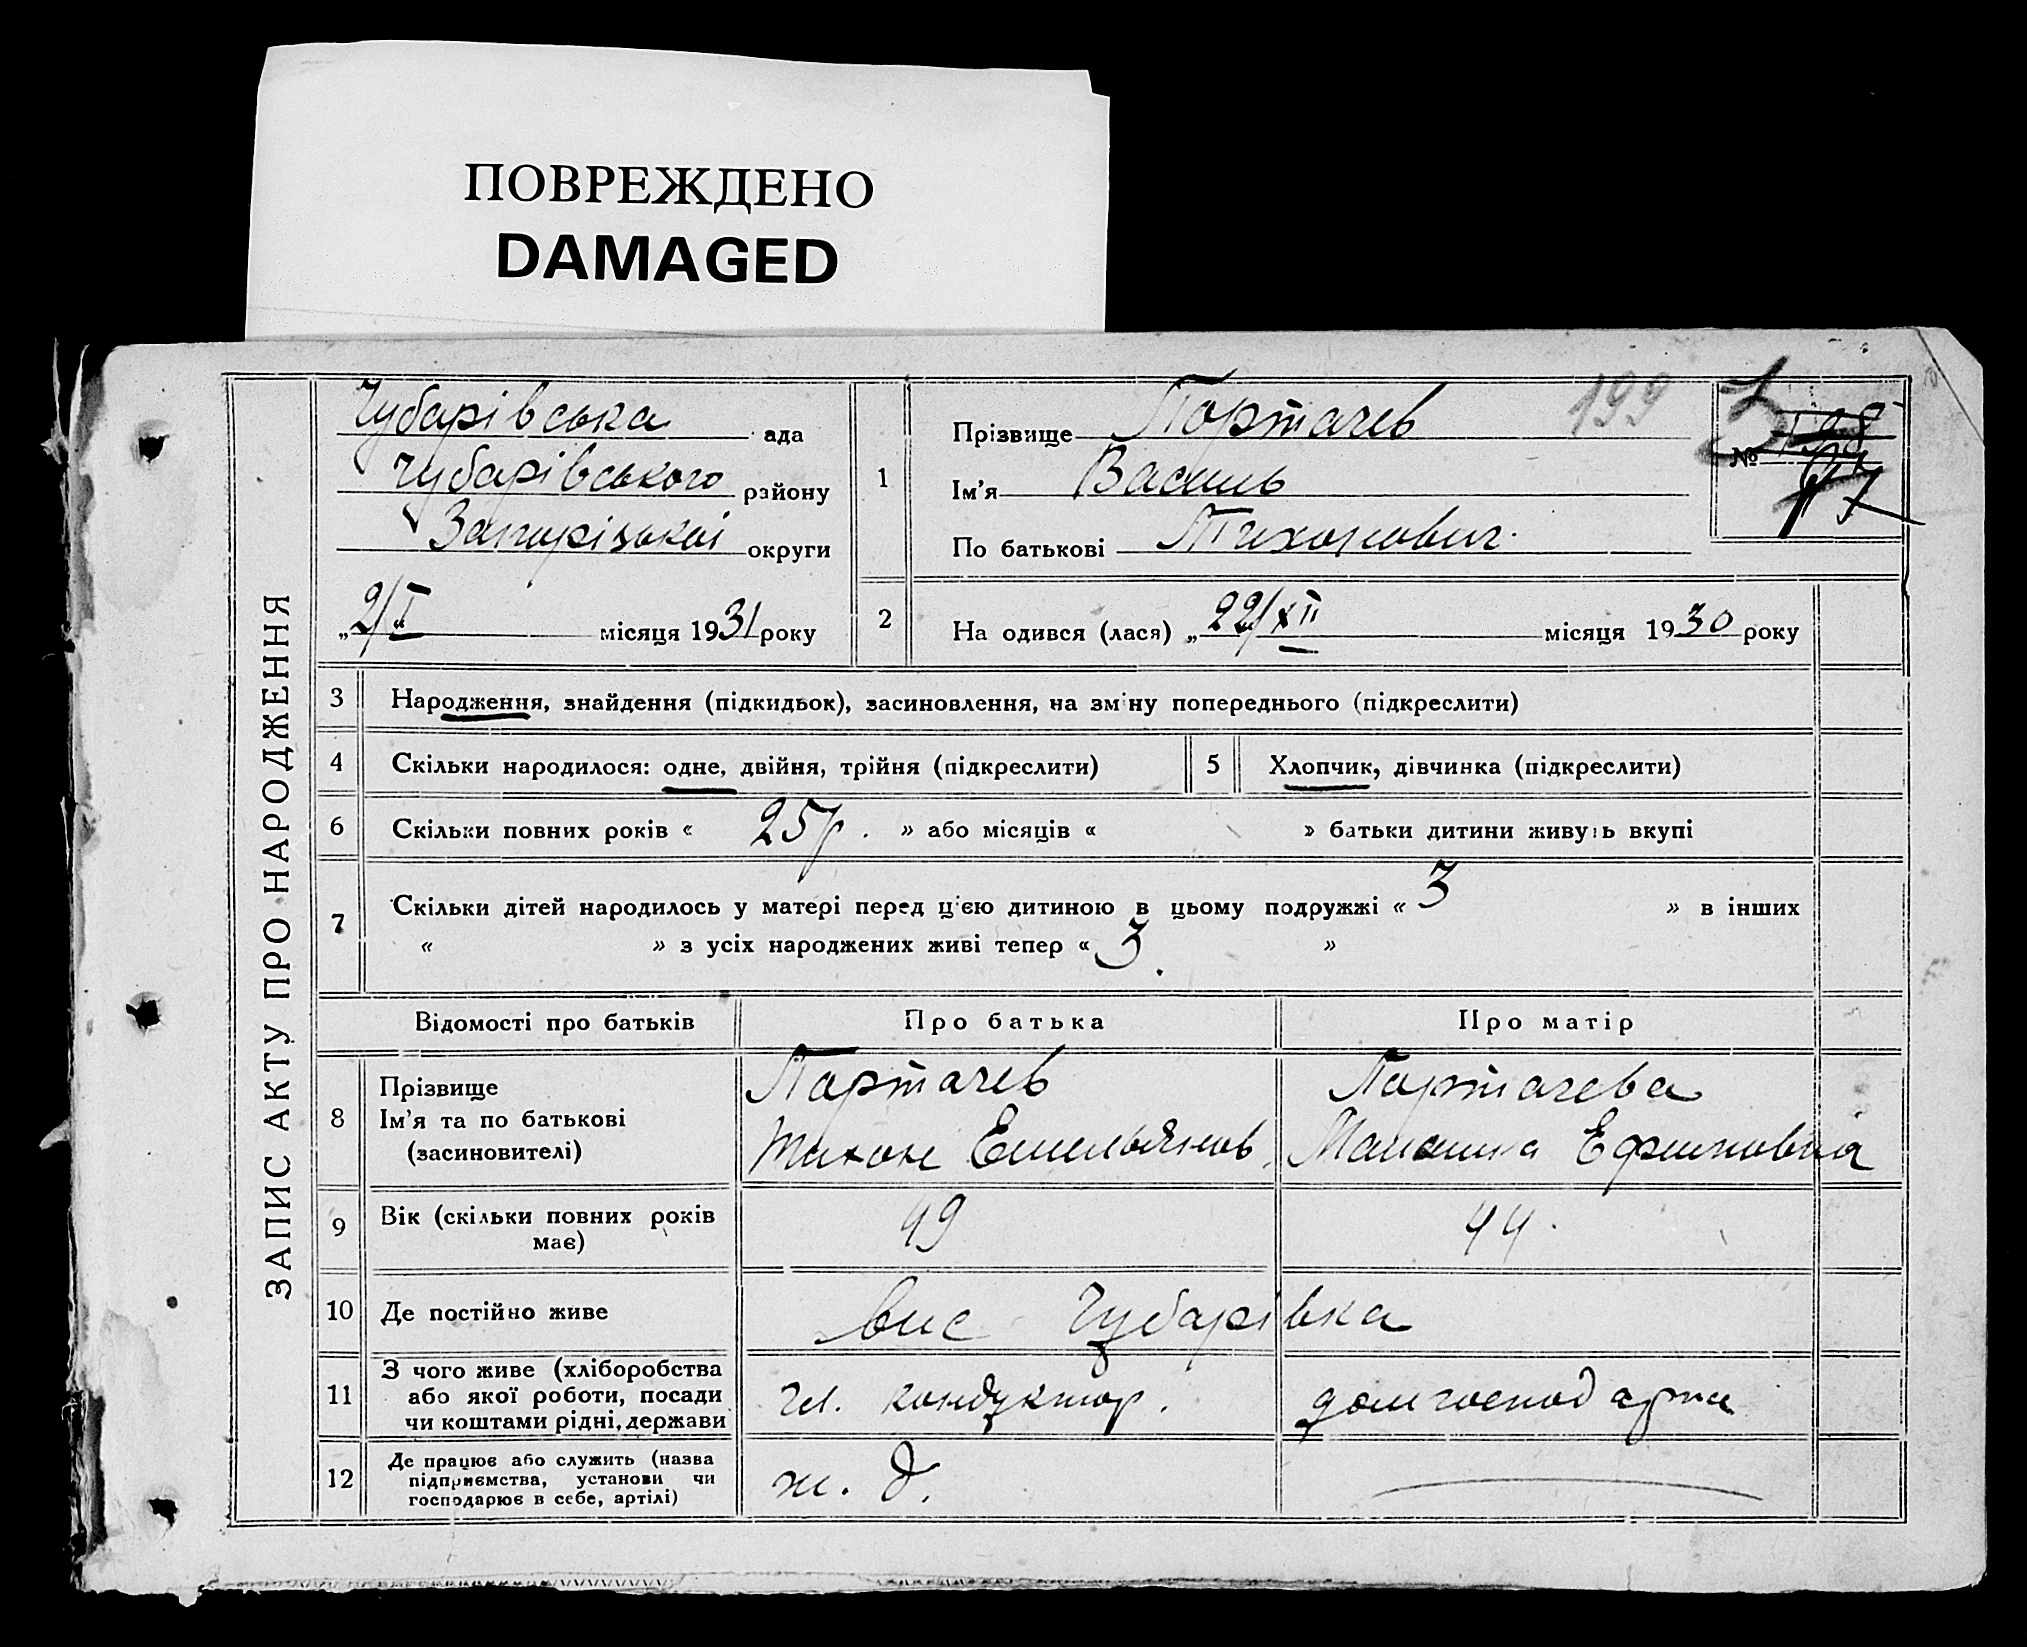 ПОВРЕЖДЕНО
DAMAGED
ЗАПИС АКТУ ПРО НАРОДЖЕННЯ
Чубарівська ада
Чубарівського району
Запорізької округи
„2/I“ місяця 1931 року
1
Прізвище Портачев
Ім'я Василь
По батькові Тихонович
199
№
2
На одився (лася) „22/XII місяця 1930 року
3 Народження, знайдення (підкидьок), засиновлення, на зміну попереднього (підкреслити)
4 Скільки народилося: одне, двійня, трійня (підкреслити)
5 Хлопчик, дівчинка (підкреслити)
6 Скільки повних років « 25 р. » або місяців « » батьки дитини живуть вкупі
7 Скільки дітей народилось у матері перед цією дитиною в цьому подружжі « 3 » в інших
« » з усіх народжених живі тепер « 3. »
Відомості про батьків Про батька Про матір
8 Прізвище
Ім'я та по батькові
(засиновителі)
Портачев
Тихон Емельянов.
Портачева
Ефимовна
9 Вік (скільки повних років
має)
49
44.
10 Де постійно живе
вис Чубарівка
11 З чого живе (хліборобства
або якої роботи, посади
чи коштами рідні, держави
гл. кондуктор.
дом господарка
12 Де працює або служить (назва
підприємства, установи чи
господарює в себе, артілі)
ж. д.